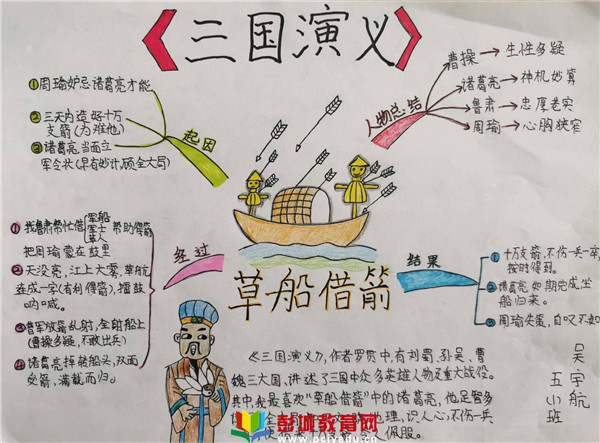 《三国演义》
①周瑜妒忌诸葛亮才能
②三天内造好十万
支箭(为难他)
③诸葛亮当面立
军令状(早有妙计,顾全大局)
起因
人物总结
曹操→生性多疑
诸葛亮→神机妙算
鲁肃→忠厚老实
周瑜→心胸狭窄
①找鲁肃帮忙借
军船
军士
草人
帮助借箭
把周瑜蒙在鼓里
②天没亮,江上大雾,草船
连成一字(有利得箭),擂鼓
呐喊。
③曹军放箭乱射,全射船上
(曹操多疑,不敢出兵)
④诸葛亮掉转船头,双面
受箭,满载而归。
经过
草船借箭
结果
①十万支箭,不伤一兵一卒,
按时得到。
②诸葛亮如期完成,坐
船归来。
③周瑜失策,自叹不如
《三国演义》,作者罗贯中,有刘蜀、孙吴、曹
魏三大国,讲述了三国中众多英雄人物及重大战役。
其中,我最喜欢“草船借箭”中的诸葛亮,他足智多
地理,识人心,不伤一兵
人佩服。
五小班
吴宇航
彭城教育网
www.pcjyedu.cn